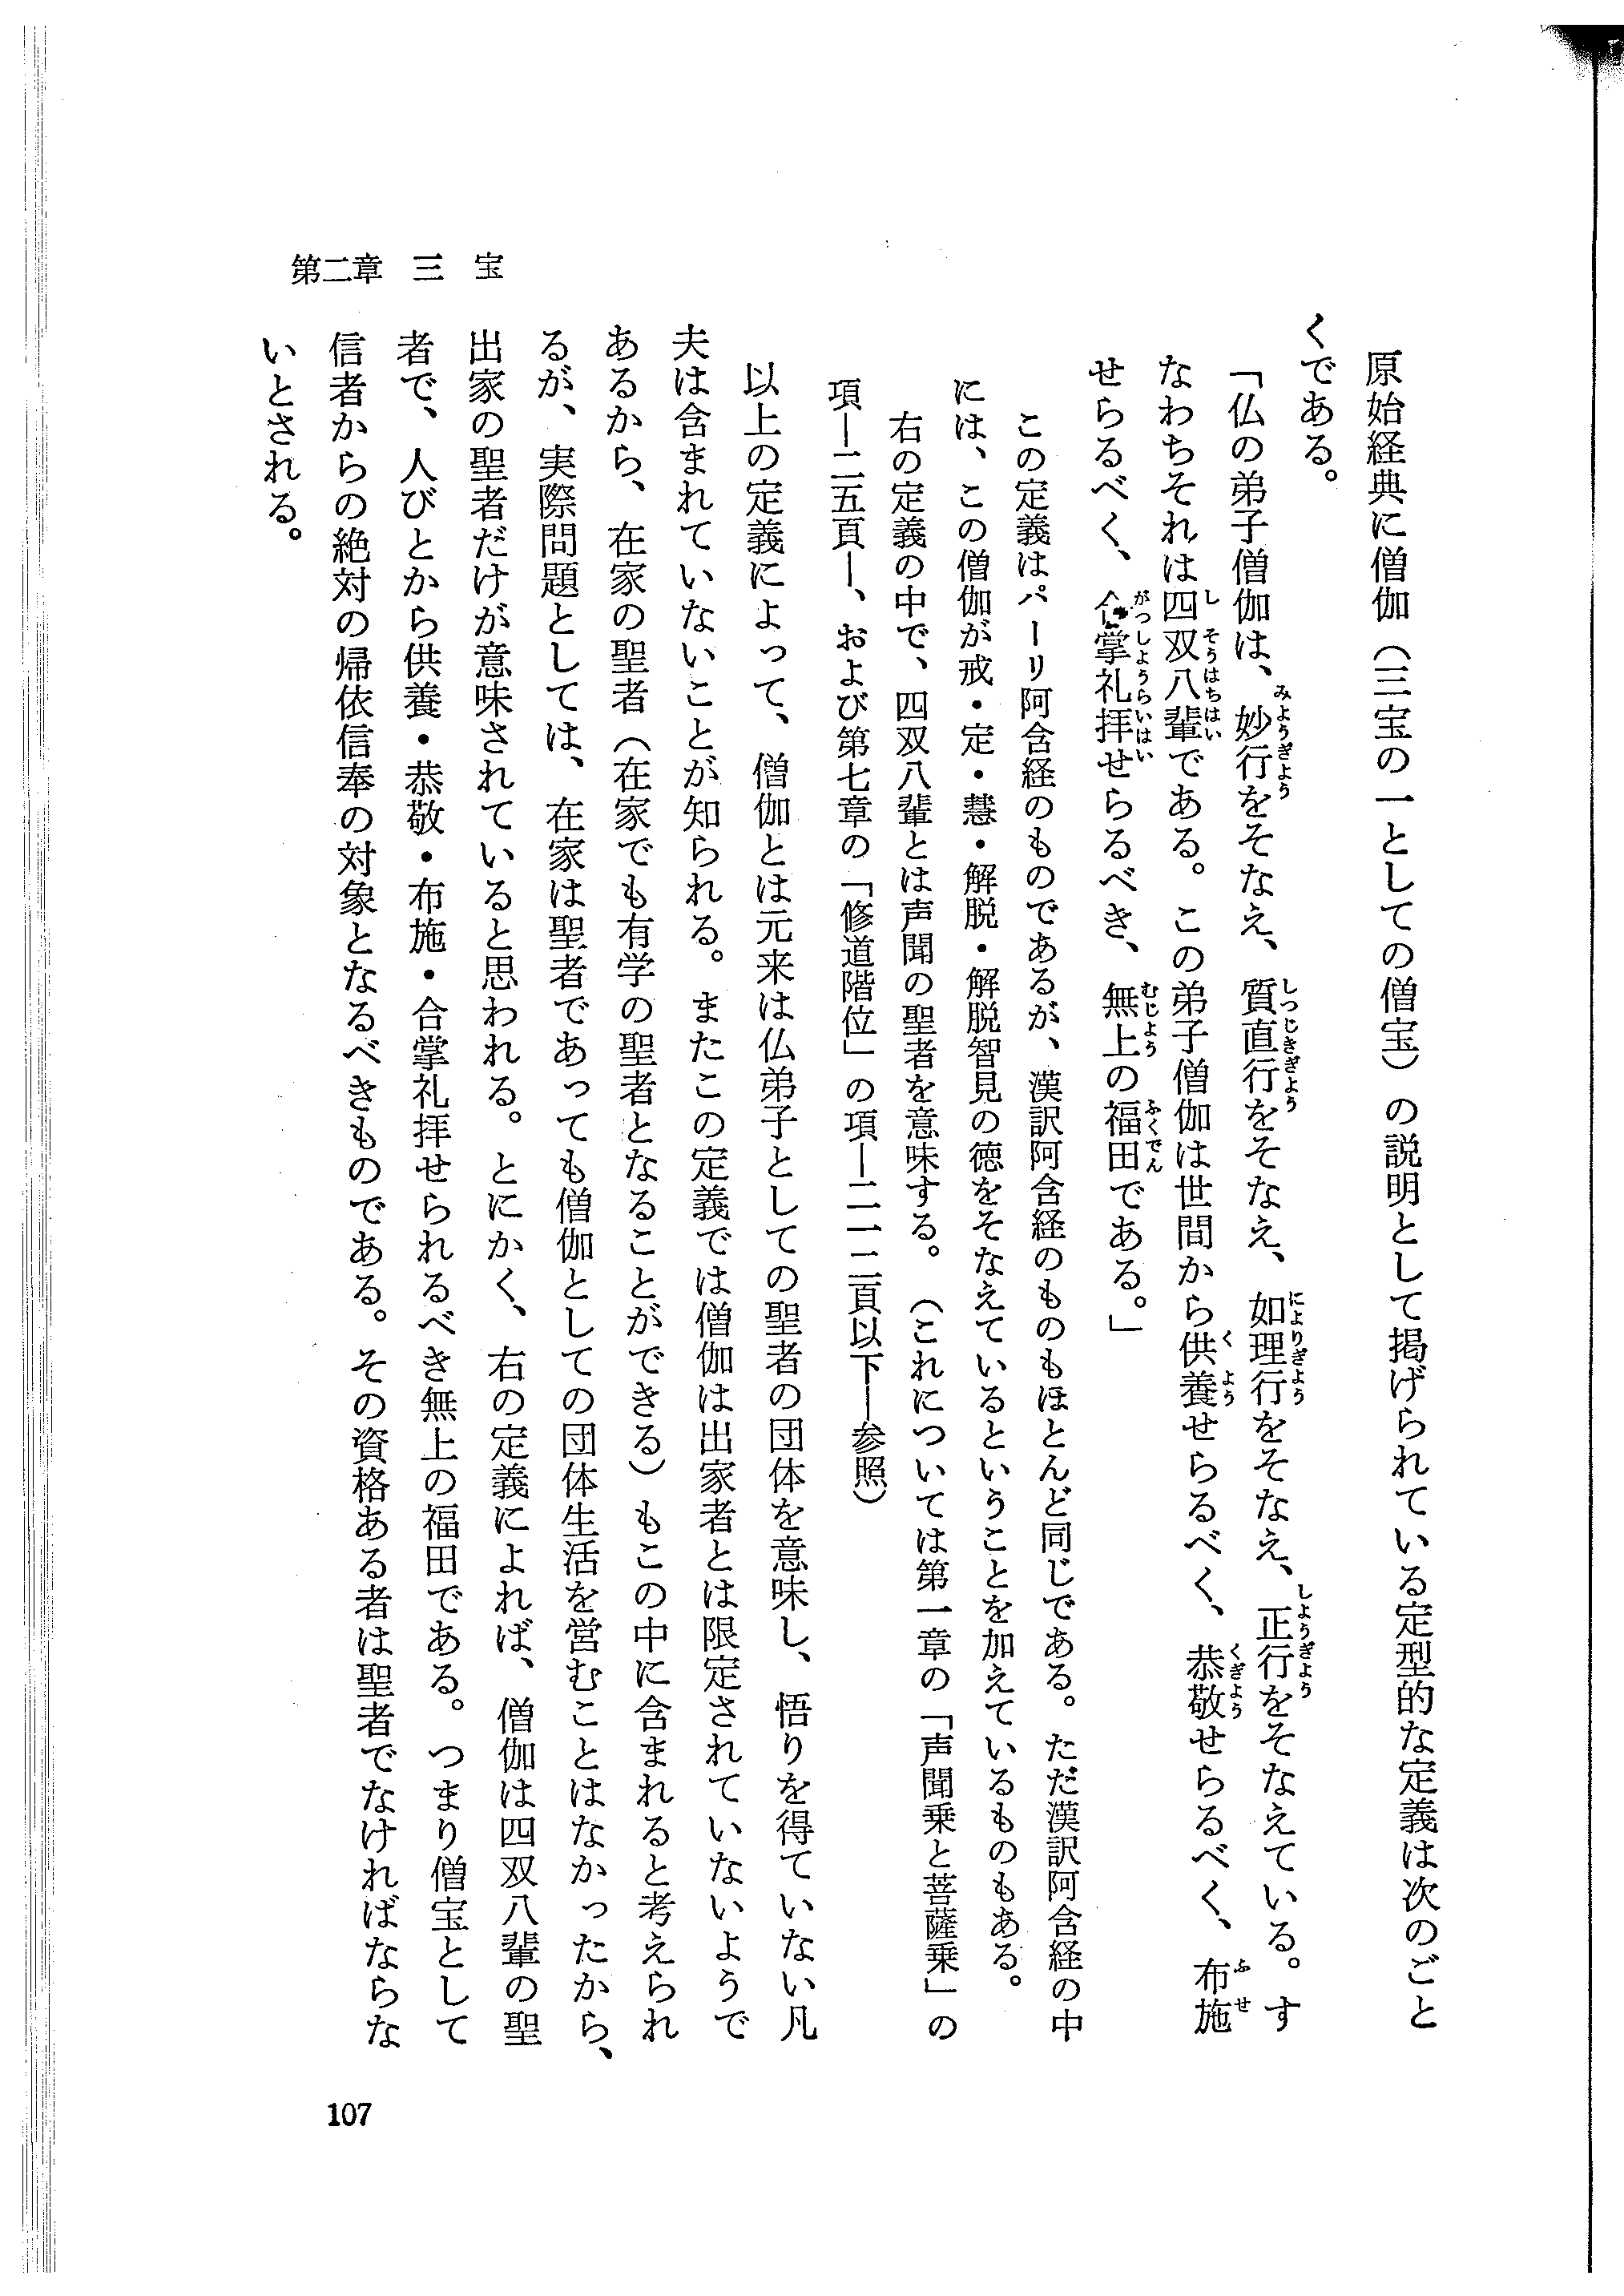 第二章　三　宝
原始経典に僧伽（三宝の一としての僧宝）の説明として掲げられている定型的な定義は次のごと
くである。
「仏の弟子僧伽は、妙行をそなえ、質直行をそなえ、如理行をそなえ、正行をそなえている。す
なわちそれは四双八輩である。この弟子僧伽は世間から供養せらるべく、恭敬せらるべく、布施
せらるべく、合掌礼拝せらるべき、無上の福田である。」
この定義はパーリ阿含経のものであるが、漢訳阿含経のものもほとんど同じである。ただ漢訳阿含経の中
には、この僧伽が戒・定・慧・解脱・解脱智見の徳をそなえているということを加えているものもある。
右の定義の中で、四双八輩とは声聞の聖者を意味する。（これについては第一章の「声聞乗と菩薩乗」の
項―二五頁―、および第七章の「修道階位」の項―二一二頁以下―参照）
以上の定義によって、僧伽とは元来は仏弟子としての聖者の団体を意味し、悟りを得ていない凡
夫は含まれていないことが知られる。またこの定義では僧伽は出家者とは限定されていないようで
あるから、在家の聖者（在家でも有学の聖者となることができる）もこの中に含まれると考えられ
るが、実際問題としては、在家は聖者であっても僧伽としての団体生活を営むことはなかったから、
出家の聖者だけが意味されていると思われる。とにかく、右の定義によれば、僧伽は四双八輩の聖
者で、人びとから供養・恭敬・布施・合掌礼拝せられるべき無上の福田である。つまり僧宝として
信者からの絶対の帰依信奉の対象となるべきものである。その資格ある者は聖者でなければならな
いとされる。
107